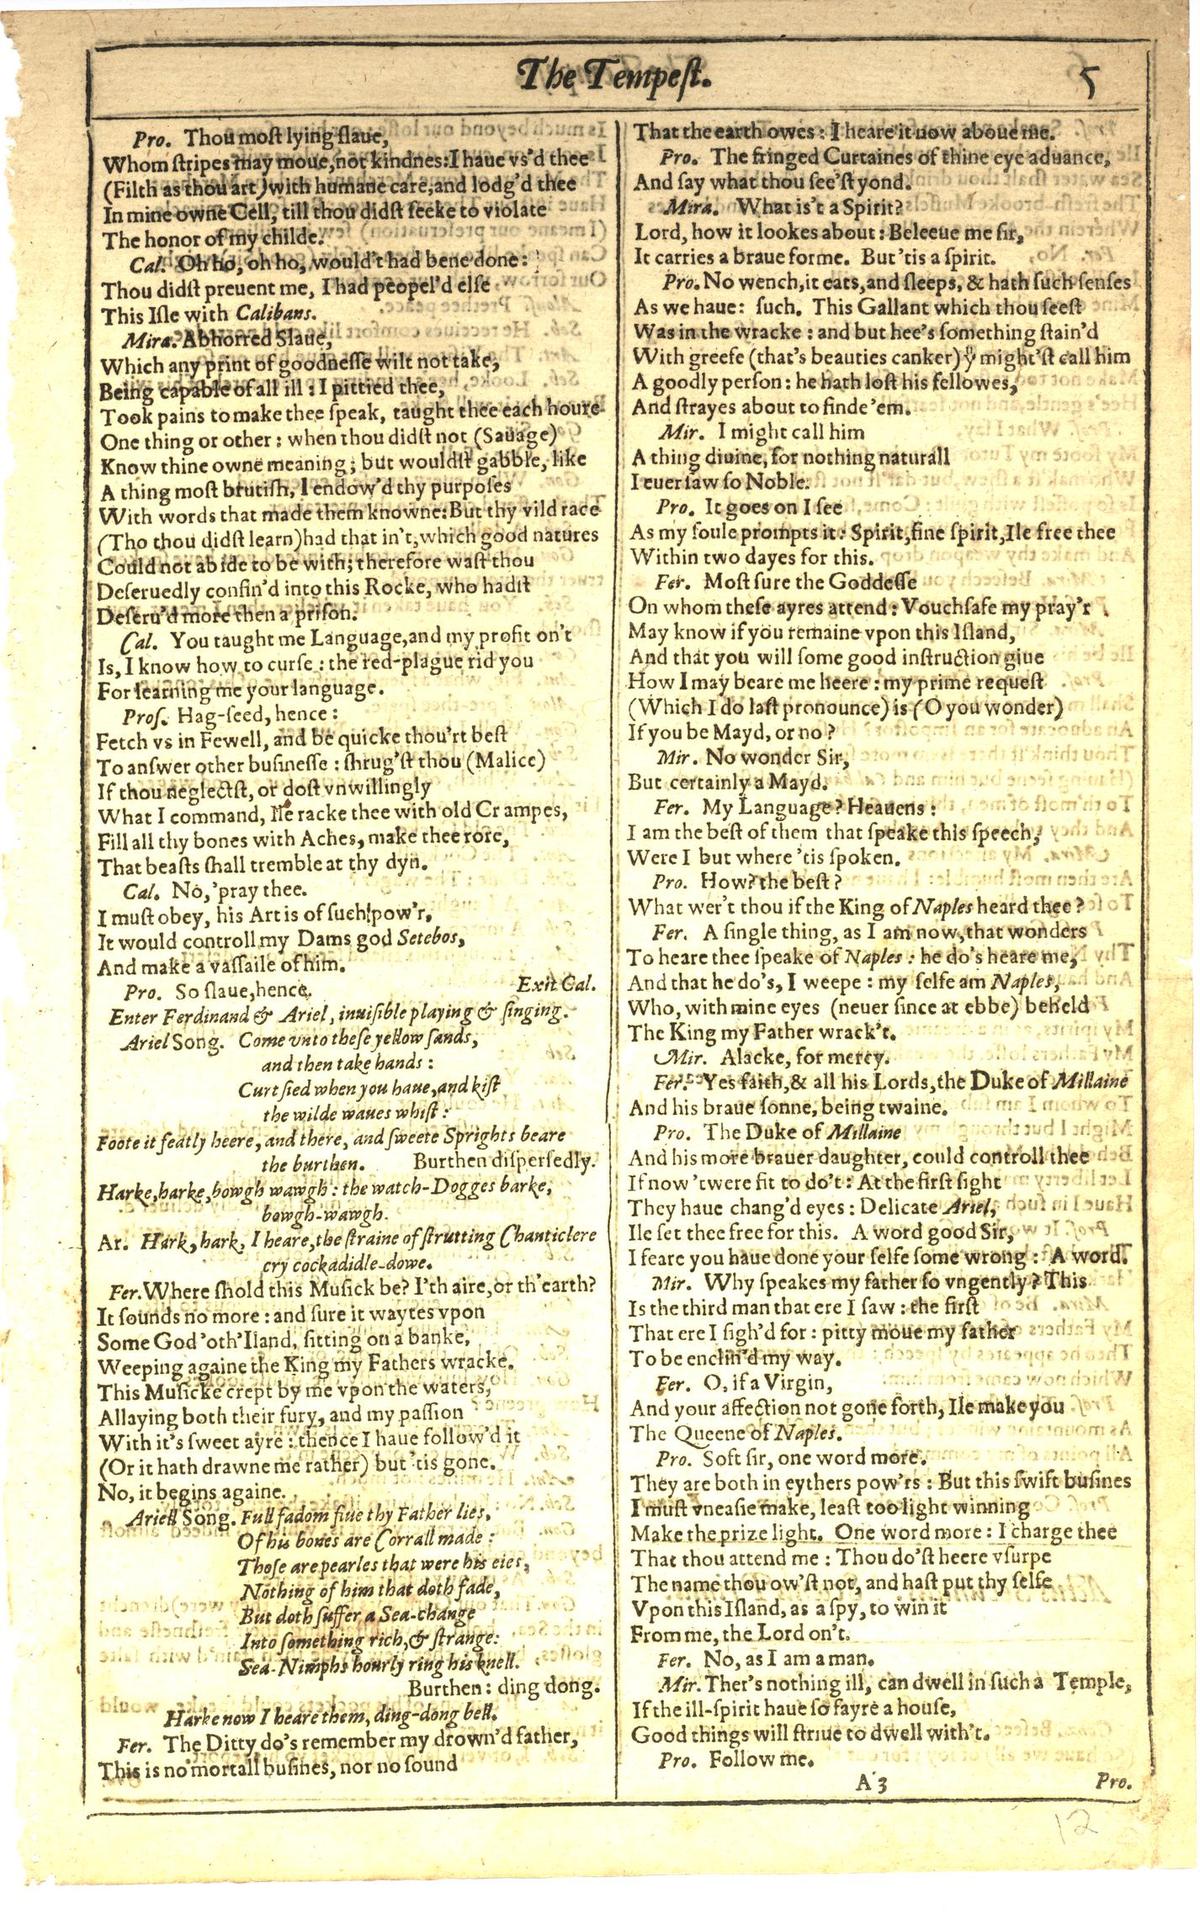 The Tempeſt.
5
Pro. Thou moſt lying ſlaue,
Whom ſtripes may moue, not kindnes: I haue vs'd thee
(Filth as thou art) with humane care, and lodg'd thee
In mine owne Cell, till thou didſt ſeeke to violate
The honor of my childe.
Cal. Oh ho, oh ho, would't had bene done:
Thou didſt preuent me, I had peopel'd elſe
This Iſle with Calibans.
Mira. Abhorred Slaue,
Which any print of goodneſſe wilt not take,
Being capable of all ill: I pittied thee,
Took pains to make thee ſpeak, taught thee each houre
One thing or other: when thou didſt not (Sauage)
Know thine owne meaning; but wouldſt gabble, like
A thing moſt brutiſh, I endow'd thy purpoſes
With words that made them knowne: But thy vild race
(Tho thou didſt learn) had that in't, which good natures
Could not abide to be with; therefore waſt thou
Deſeruedly confin'd into this Rocke, who hadſt
Deſeru'd more then a priſon.
Cal. You taught me Language, and my profit on't
Is, I know how to curſe: the red-plague rid you
For learning me your language.
Proſ. Hag-ſeed, hence:
Fetch vs in Fewell, and be quicke thou'rt beſt
To anſwer other buſineſſe: ſhrug'ſt thou (Malice)
If thou neglectſt, or doſt vnwillingly
What I command, Ile racke thee with old Crampes,
Fill all thy bones with Aches, make thee rore,
That beaſts ſhall tremble at thy dyn.
Cal. No, 'pray thee.
I muſt obey, his Art is of ſuch pow'r,
It would controll my Dams god Setebos,
And make a vaſſaile of him.
Pro. So ſlaue, hence. Exit Cal.
Enter Ferdinand & Ariel, inuiſible playing & ſinging.
Ariel Song. Come vnto theſe yellow ſands,
and then take hands:
Curtſied when you haue, and kiſt
the wilde waues whiſt:
Foote it featly heere, and there, and ſweete Sprights beare
the burthen. Burthen diſperſedly.
Harke, harke, bowgh wawgh: the watch-Dogges barke,
bowgh-wawgh.
Ar. Hark, hark, I heare, the ſtraine of ſtrutting Chanticlere
cry cockadidle-dowe.
Fer. Where ſhold this Muſick be? I'th aire, or th'earth?
It ſounds no more: and ſure it waytes vpon
Some God 'oth'Iland, ſitting on a banke,
Weeping againe the King my Fathers wracke.
This Muſicke crept by me vpon the waters,
Allaying both their fury, and my paſſion
With it's ſweet ayre: thence I haue follow'd it
(Or it hath drawne me rather) but 'tis gone.
No, it begins againe.
Ariell Song. Full fadom fiue thy Father lies,
Of his bones are Corrall made:
Thoſe are pearles that were his eies,
Nothing of him that doth fade,
But doth ſuffer a Sea-change
Into ſomething rich, & ſtrange:
Sea-Nimphs hourly ring his knell.
Burthen: ding dong.
Harke now I heare them, ding-dong bell.
Fer. The Ditty do's remember my drown'd father,
This is no mortall buſines, nor no ſound
That the earth owes: I heare it now aboue me.
Pro. The fringed Curtaines of thine eye aduance,
And ſay what thou ſee'ſt yond.
Mira. What is't a Spirit?
Lord, how it lookes about: Beleeue me ſir,
It carries a braue forme. But 'tis a ſpirit.
Pro. No wench, it eats, and ſleeps, & hath ſuch ſenſes
As we haue: ſuch. This Gallant which thou ſeeſt
Was in the wracke: and but hee's ſomething ſtain'd
With greefe (that's beauties canker) yͧ might'ſt call him
A goodly perſon: he hath loſt his fellowes,
And ſtrayes about to finde 'em.
Mir. I might call him
A thing diuine, for nothing naturall
I euer ſaw ſo Noble.
Pro. It goes on I ſee
As my ſoule prompts it: Spirit, fine ſpirit, Ile free thee
Within two dayes for this.
Fer. Moſt ſure the Goddeſſe
On whom theſe ayres attend: Vouchſafe my pray'r
May know if you remaine vpon this Iſland,
And that you will ſome good inſtruction giue
How I may beare me heere: my prime requeſt
(Which I do laſt pronounce) is (O you wonder)
If you be Mayd, or no?
Mir. No wonder Sir,
But certainly a Mayd.
Fer. My Language? Heauens:
I am the beſt of them that ſpeake this ſpeech,
Were I but where 'tis ſpoken.
Pro. How? the beſt?
What wer't thou if the King of Naples heard thee?
Fer. A ſingle thing, as I am now, that wonders
To heare thee ſpeake of Naples: he do's heare me,
And that he do's, I weepe: my ſelfe am Naples,
Who, with mine eyes (neuer ſince at ebbe) beheld
The King my Father wrack't.
Mir. Alacke, for mercy.
Fer. Yes faith, & all his Lords, the Duke of Millaine
And his braue ſonne, being twaine.
Pro. The Duke of Millaine
And his more brauer daughter, could controll thee
If now 'twere fit to do't: At the firſt ſight
They haue chang'd eyes: Delicate Ariel,
Ile ſet thee free for this. A word good Sir,
I feare you haue done your ſelfe ſome wrong: A word.
Mir. Why ſpeakes my father ſo vngently? This
Is the third man that ere I ſaw: the firſt
That ere I ſigh'd for: pitty moue my father
To be enclin'd my way.
Fer. O, if a Virgin,
And your affection not gone forth, Ile make you
The Queene of Naples.
Pro. Soft ſir, one word more.
They are both in eythers pow'rs: But this ſwift buſines
I muſt vneaſie make, leaſt too light winning
Make the prize light. One word more: I charge thee
That thou attend me: Thou do'ſt heere vſurpe
The name thou ow'ſt not, and haſt put thy ſelfe
Vpon this Iſland, as a ſpy, to win it
From me, the Lord on't.
Fer. No, as I am a man.
Mir. Ther's nothing ill, can dwell in ſuch a Temple,
If the ill-ſpirit haue ſo fayre a houſe,
Good things will ſtriue to dwell with't.
Pro. Follow me.
A 3 Pro.
12